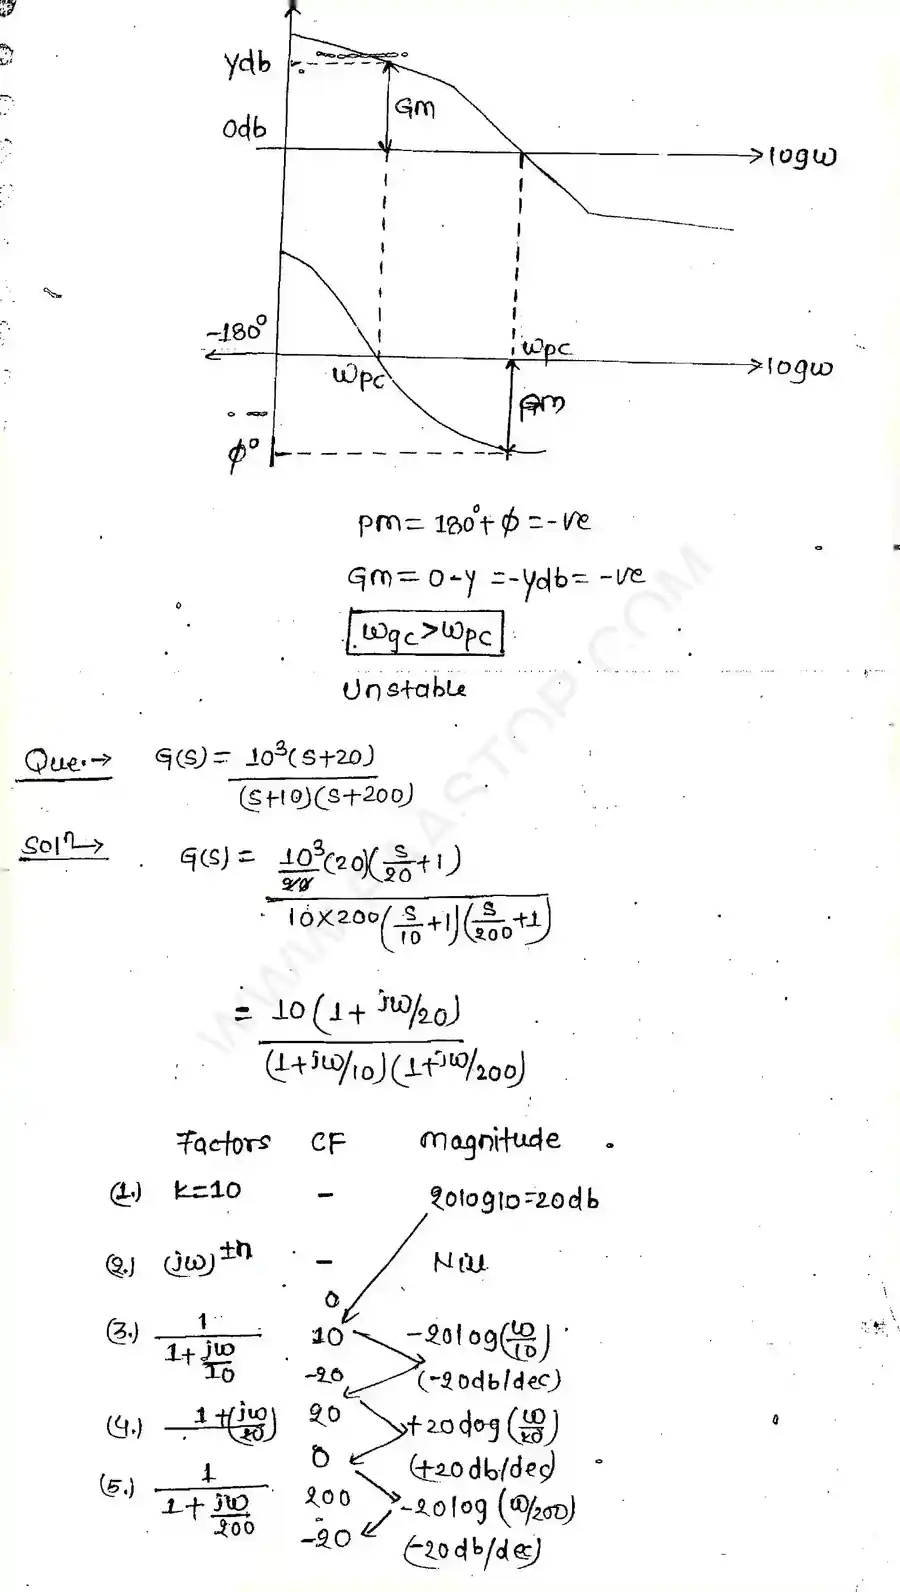 ydb
Gm
0db
logω
-180°
ωpc
ωpc
logω
Gm
ϕ°
pm = 180° + ϕ = -ve
Gm = 0 - y = -ydb = -ve
ωgc > ωpc
Unstable
Que.→ G(s) = 10³(s+20) / (s+10)(s+200)
Solⁿ→ G(s) = 10³(20)(s/20 + 1) / 10×200(s/10 + 1)(s/200 + 1)
= 10(1 + jω/20) / (1+jω/10)(1+jω/200)
Factors CF magnitude
(1.) k=10 - 20log10=20db
(2.) (jω)^±n - Nill
0
(3.) 1 / 1+jω/10 10 -20log(ω/10)
-20 (-20db/dec)
(4.) 1+(jω/20) 20 +20log(ω/20)
0 (+20db/dec)
(5.) 1 / 1+jω/200 200 -20log(ω/200)
-20 (-20db/dec)